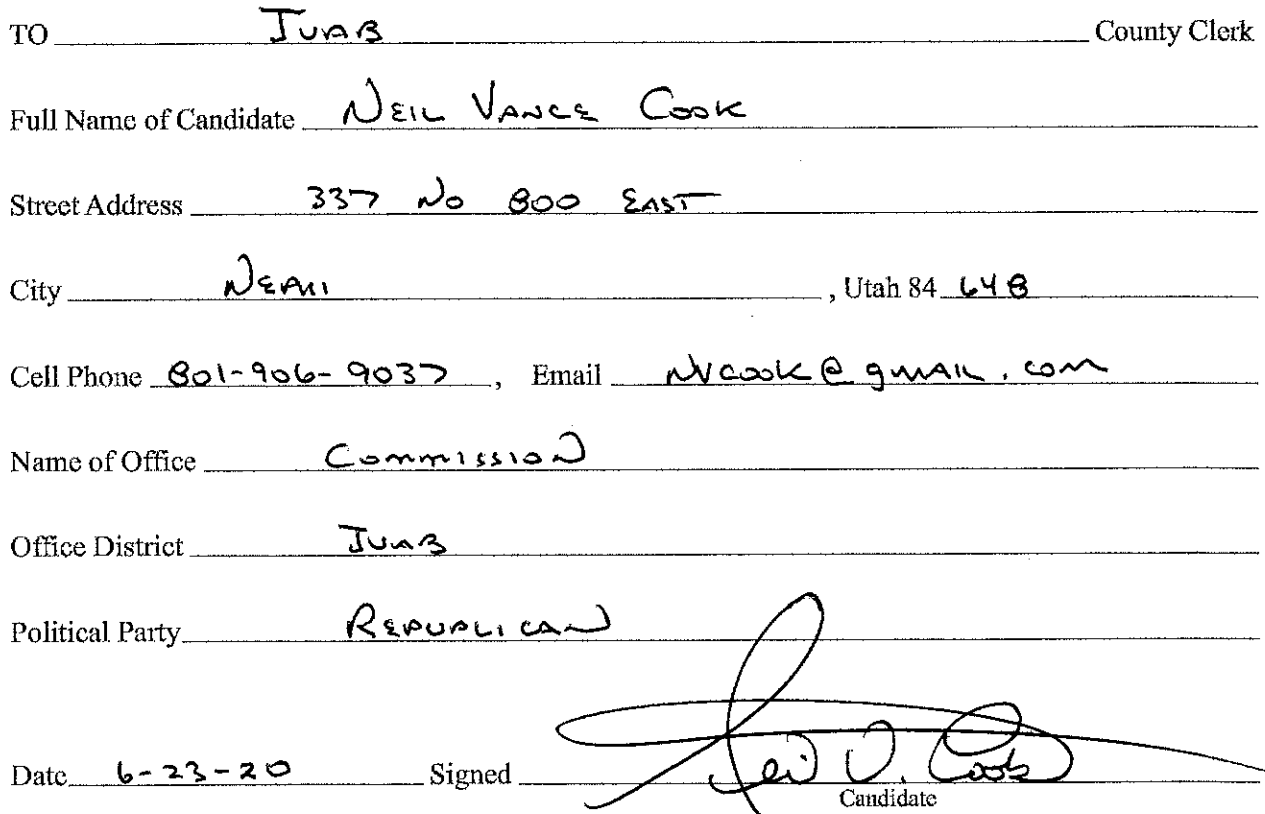 TO JUAB County Clerk
Full Name of Candidate NEIL VANCE COOK
Street Address 337 No 800 EAST
City NEPHI, Utah 84 648
Cell Phone 801-906-9037, Email NVCOOK@gmail.com
Name of Office COMMISSION
Office District JUAB
Political Party REPUBLICAN
Date 6-23-20 Signed Neil V. Cook
Candidate